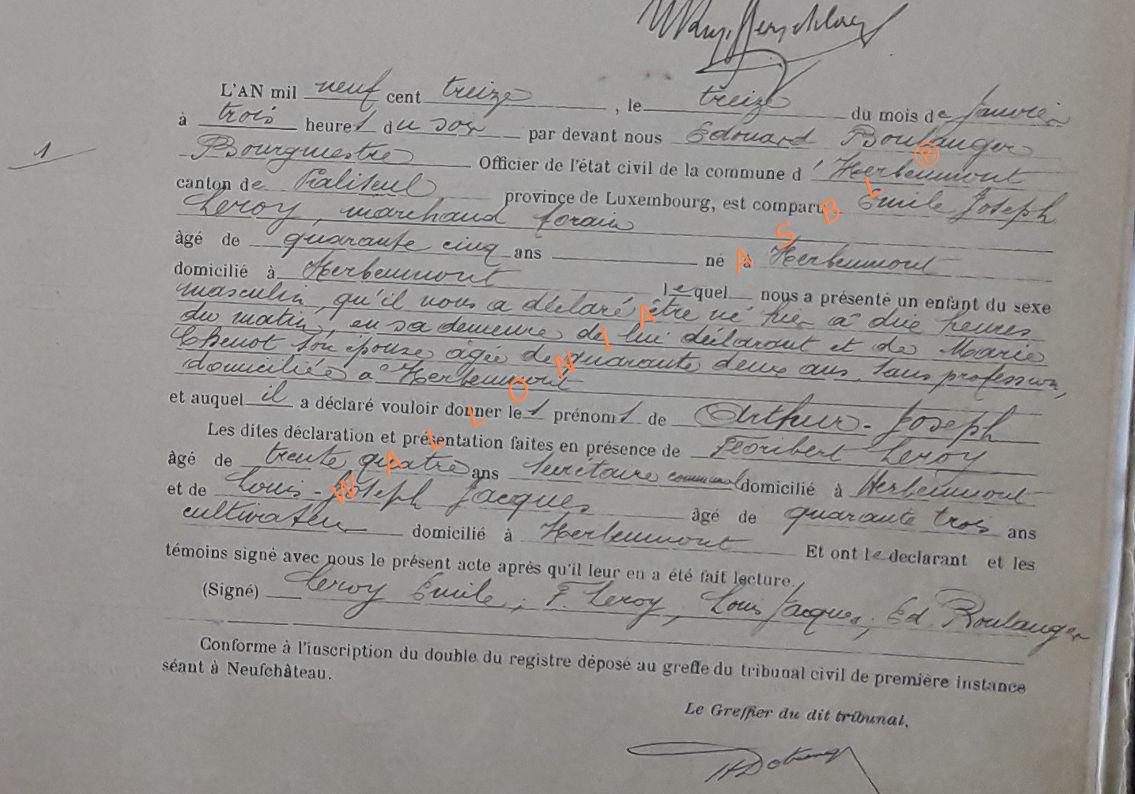 L'AN mil neuf cent treize, le treize du mois de Janvier
à trois heures du soir par devant nous Edouard Boulanger
1
Bourgmestre Officier de l'état civil de la commune d'Herbeumont
canton de Paliseul province de Luxembourg, est comparu Emile Joseph
Leroy, marchand forain
âgé de quarante cinq ans né à Herbeumont
domicilié à Herbeumont lequel nous a présenté un enfant du sexe
masculin, qu'il nous a déclaré être né hier à dix heures
du matin, en sa demeure de lui déclarant et de Marie
Chenot son épouse âgée de quarante deux ans, sans profession,
domiciliée à Herbeumont
et auquel il a déclaré vouloir donner les prénoms de Arthur-Joseph
Les dites déclaration et présentation faites en présence de Floribert Leroy
âgé de trente quatre ans Secrétaire communal domicilié à Herbeumont
et de Louis-Joseph Jacques âgé de quarante trois ans
cultivateur domicilié à Herbeumont Et ont le declarant et les
témoins signé avec nous le présent acte après qu'il leur en a été fait lecture.
(Signé) Leroy Emile, F. Leroy, Louis Jacques, Ed. Boulanger
Conforme à l'inscription du double du registre déposé au greffe du tribunal civil de première instance
séant à Neufchâteau.
Le Greffier du dit tribunal,
WALLONIA ASBL ®